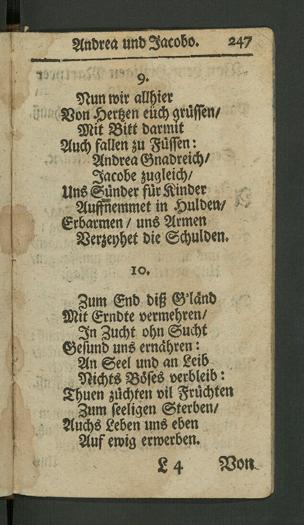 Andrea und Jacobo. 247
9.
Nun wir allhier
Von Hertzen euch grüssen/
Mit Bitt darmit
Auch fallen zu Füssen:
Andrea Gnadreich/
Jacobe zugleich/
Uns Sünder für Kinder
Auffnemmet in Hulden/
Erbarmen/ uns Armen
Verzeyhet die Schulden.
10.
Zum End diß G'länd
Mit Erndte vermehren/
In Zucht ohn Sucht
Gesund uns ernähren:
An Seel und an Leib
Nichts Böses verbleib:
Thuen züchten vil Früchten
Zum seeligen Sterben/
Auchs Leben uns eben
Auf ewig erwerben.
L 4 Von